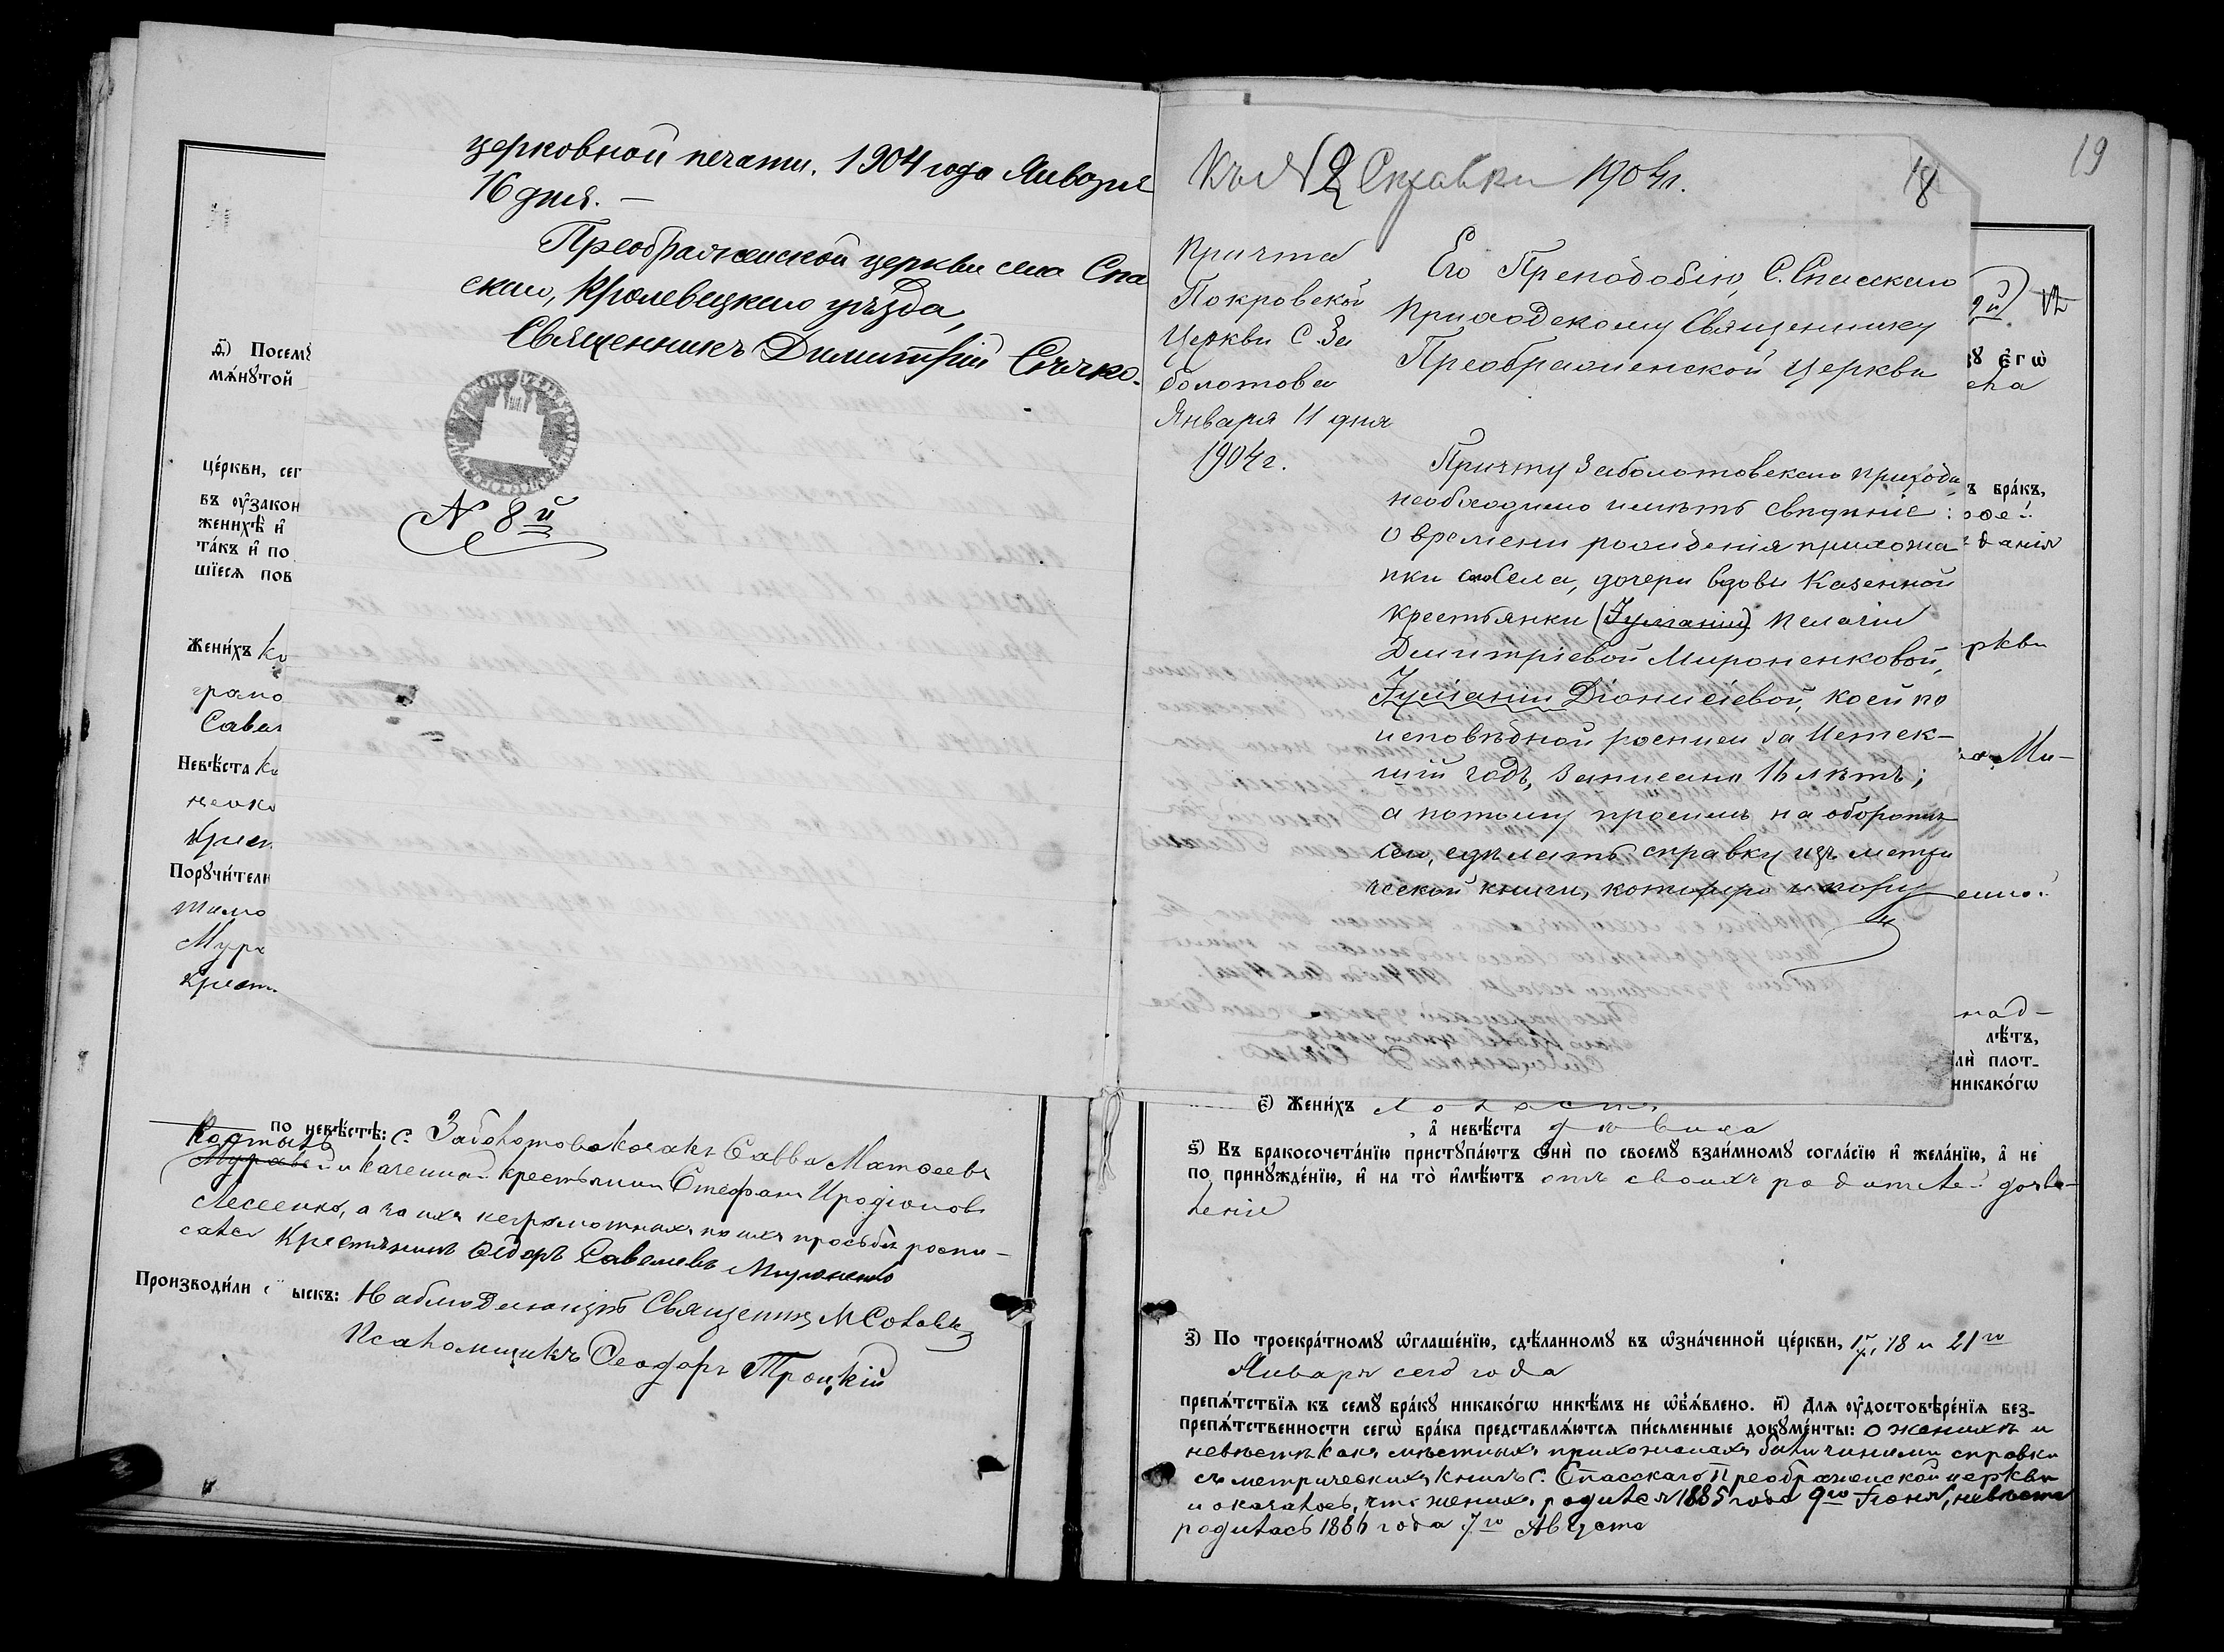 церковной печати. 1904 года Января
16 дня. —
Преображенской церкви села Спа
скаго, Кролевецкаго уѣзда,
Священникъ Димитрій Сѣчко.
№ 8й
а҃) Посемꙋ
мѧ́нꙋтой
це́ркви, сег
въ оу҆закон
женихѣ̀ и҆
та́къ и҆ по
шїесѧ пов
Жени́хъ ка
грамо
Савел
Невѣ́ста Ка
ненко
Крест
Порꙋчи́тели
тимо
Мура
Крест
по невѣ́стѣ: с. Заболотова козакъ Савва Матѳеевъ
Костыкъ
Муравей и казенный крестьянинъ Стефанъ Иродіоновъ
Лесенко, а за ихъ неграмотныхъ по ихъ просьбѣ роспи-
сался крестьянинъ Ѳедоръ Савельевъ Мироненко
Производи́ли ыскъ: Наблюдающій Священникъ М Соловій
Псаломщикъ Ѳеодоръ Троцкій
19
Къ № 2 Справки 1904 г.
18
Причта
Покровской
Церкви С. За
болотова
Января 11 дня
1904 г.
Его Преподобію, С. Спасскаго
Приходскому Священнику
Преображенской Церкви
Причту Заболотовскаго прихода
необходимо имѣть свѣдѣніе:
о времени рожденія прихожа
нки сего Села, дочери вдовы Казенной
крестьянки (Іуліаніи) Пелагіи
Димитріевой Мироненковой,
Іуліаніи Діонисіевой, коей по
исповѣдной росписи за Истек-
шій годъ, записано 16 лѣтъ;
а потому просимъ на оборотѣ
сего, сдѣлать справку изъ метри
ческой книги,
ꙋ є҆гѡ̀
ъ бра́къ,
ркви
Ми-
над-
лѣ́тъ,
ли̑ плот-
никако́гѡ
є҃) Жени́хъ холостъ
, а҆ невѣ́ста дѣвица
ѕ҃) Въ бракосочета́нїю пристꙋпа́ютъ ѻ҆нѝ по своемꙋ̀ взаи́мномꙋ согла́сїю и҆ жела́нїю, а҆ не
по принꙋжде́нїю, и҆ на то̀ и҆мѣ́ютъ отъ своихъ родителей дозво-
леніе
з҃) По троекра́тномꙋ ѡ҆глаше́нїю, сдѣ́ланномꙋ въ ѡ҆зна́ченной це́ркви, 17, 18 и 21го
Января сего года
препѧ́тствїѧ къ семꙋ̀ бра́кꙋ никако́гѡ никѣ́мъ не ѡ҆б̾ѧ́влено. и҃) Для оу҆достовѣре́нїѧ без-
препѧ́тственности сегѡ̀ бра́ка представлѧ́ютсѧ пи́сьменные докꙋме́нты: о женихѣ и
невѣстѣ какъ мѣстныхъ прихожанахъ были чинимы справки
съ метрическихъ книгъ с. Спасскаго Преображенской церкви
и оказалось, что женихъ родился 1885 года 9го Іюня, невѣста
родилась 1886 года 7го Августа